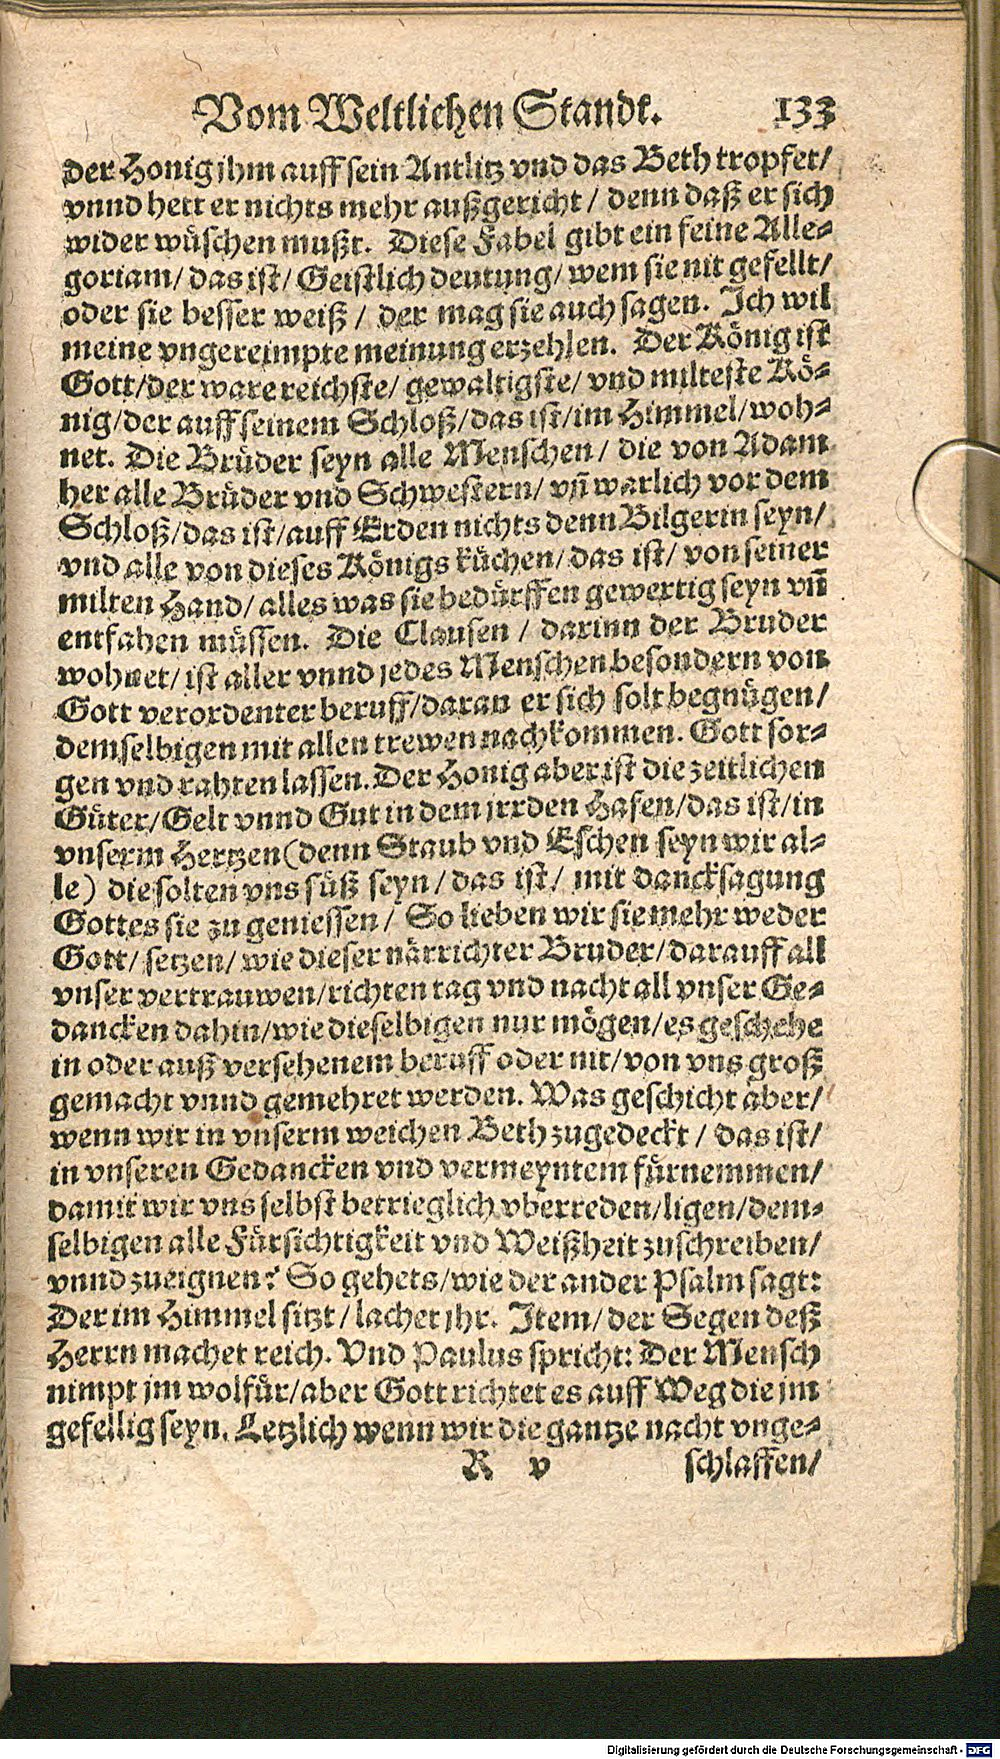 Vom Weltlichen Standt. 133
der Honig jhm auff sein Antlitz vnd das Beth tropfet/
vnnd hett er nichts mehr außgericht / denn daß er sich
wider wüschen mußt. Diese Fabel gibt ein feine Alle-
goriam/ das ist/ Geistlich deutung/ wem sie nit gefellt/
oder sie besser weiß / der mag sie auch sagen. Ich wil
meine vngereimpte meinung erzehlen. Der König ist
Gott/der ware reichste/ gewaltigste/ vnd milteste Kö-
nig/der auff seinem Schloß/das ist/im Himmel/woh-
net. Die Brüder seyn alle Menschen / die von Adam
her alle Brüder vnd Schwestern/ vn̄ warlich vor dem
Schloß/das ist/auff Erden nichts denn Bilgerin seyn/
vnd alle von dieses Königs küchen/ das ist/ von seiner
milten Hand/ alles was sie bedürffen gewertig seyn vn̄
entfahen müssen. Die Clausen / darinn der Bruder
wohnet/ ist aller vnnd jedes Menschen besondern von
Gott verordenter beruff/daran er sich solt begnügen/
demselbigen mit allen trewen nachkommen. Gott sor-
gen vnd rahten lassen. Der Honig aber ist die zeitlichen
Güter/ Gelt vnnd Gut in dem jrrden Hafen/das ist/in
vnserm Hertzen (denn Staub vnd Eschen seyn wir al-
le) die solten vns süß seyn / das ist/ mit dancksagung
Gottes sie zu geniessen/ So lieben wir sie mehr weder
Gott/ setzen/ wie dieser närrichter Bruder/darauff all
vnser vertrauwen/richten tag vnd nacht all vnser Ge-
dancken dahin/wie dieselbigen nur mögen/es geschehe
in oder auß versehenem beruff oder nit/von vns groß
gemacht vnnd gemehret werden. Was geschicht aber/
wenn wir in vnserm weichen Beth zugedeckt / das ist/
in vnseren Gedancken vnd vermeyntem fürnemmen/
damit wir vns selbst betrieglich vberreden/ligen/dem-
selbigen alle Fürsichtigkeit vnd Weißheit zuschreiben/
vnnd zueignen? So gehets/wie der ander Psalm sagt:
Der im Himmel sitzt / lachet jhr. Item/ der Segen deß
Herrn machet reich. Vnd Paulus spricht: Der Mensch
nimpt jm wolfür/aber Gott richtet es auff Weg die jm
gefellig seyn. Letzlich wenn wir die gantze nacht vnge-
R v schlaffen/
Digitalisierung gefördert durch die Deutsche Forschungsgemeinschaft - DFG